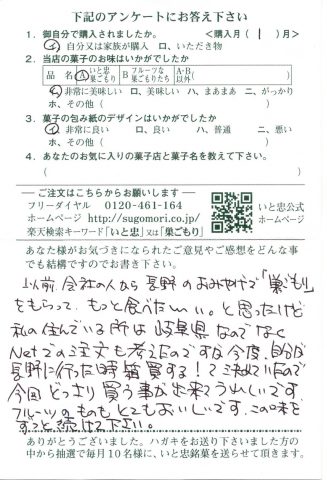 下記のアンケートにお答え下さい
1. 御自分で購入されましたか。 <購入月( 1 )月>
イ、自分又は家族が購入 ロ、いただき物
2. 当店の菓子のお味はいかがでしたか
品 名 A いと忠巣ごもり B フルーツな巣ごもりたち A・B以外( )
イ、非常に美味しい ロ、美味しい ハ、まあまあ ニ、がっかり
ホ、その他( )
3. 菓子の包み紙のデザインはいかがでしたか
イ、非常に良い ロ、良い ハ、普通 ニ、悪い
ホ、その他( )
4. あなたのお気に入りの菓子店と菓子名を教えて下さい。
( )
ご注文はこちらからお願いします
フリーダイヤル 0120-461-164
ホームページ http://sugomori.co.jp/
楽天検索キーワード「いと忠」又は「巣ごもり」
いと忠公式
ホームページ
あなた様がお気づきになられたご意見やご感想をどんな事
でも結構ですのでお書き下さい。
以前、会社の人から長野のおみやげで「巣ごもり」
をもらって、もっと食べたいい。と思ったけど
私の住んでいる所は岐阜県なのでなく
Netでの注文も考えたのですが今度、自分が
長野に行った時、箱買する!って決めていたので
今回どっさり買う事が出来てうれしいです。
フルーツのものもとてもおいしいです。この味を
ずっと続けて下さい。
ありがとうございました。ハガキをお送り下さいました方の
中から抽選で毎月10名様に、いと忠銘菓を送らせて頂きます。